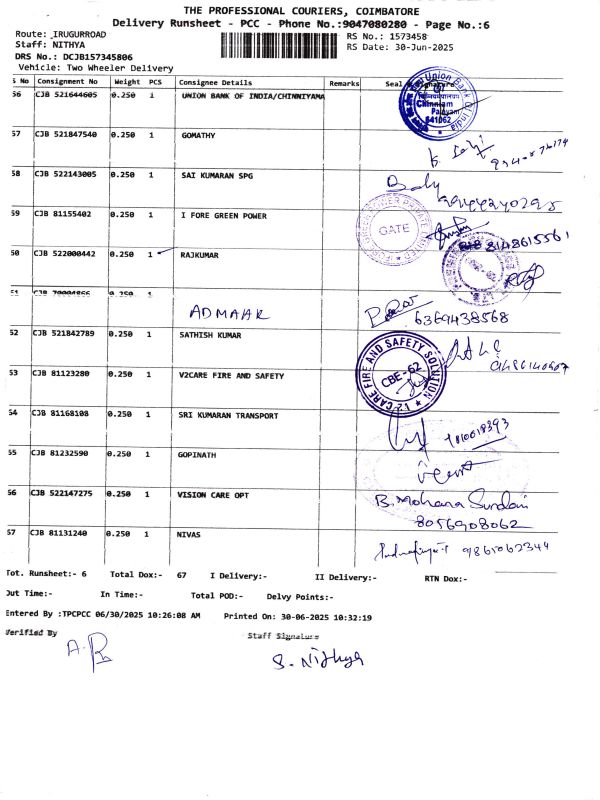 THE PROFESSIONAL COURIERS, COIMBATORE
Delivery Runsheet - PCC - Phone No.:9047080280 - Page No.:6
Route: IRUGURROAD
Staff: NITHYA
DRS No.: DCJB157345806
Vehicle: Two Wheeler Delivery
RS No.: 1573458
RS Date: 30-Jun-2025
S No Consignment No Weight PCS Consignee Details Remarks Seal
56 CJB 521644605 0.250 1 UNION BANK OF INDIA/CHINNIYAMA
Union Bank of India Chinniam Palayam 641062
57 CJB 521847540 0.250 1 GOMATHY
58 CJB 522143005 0.250 1 SAI KUMARAN SPG
59 CJB 81155402 0.250 1 I FORE GREEN POWER
GATE
8148615561
60 CJB 522000442 0.250 1 RAJKUMAR
61 CJB 70004866 0.250 1
ADMAAR
6369438568
62 CJB 521842789 0.250 1 SATHISH KUMAR
63 CJB 81123280 0.250 1 V2CARE FIRE AND SAFETY
V2 CARE FIRE AND SAFETY SOLUTION
CBE-62
64 CJB 81168108 0.250 1 SRI KUMARAN TRANSPORT
65 CJB 81232590 0.250 1 GOPINATH
66 CJB 522147275 0.250 1 VISION CARE OPT
B. Mohana Sundari
8056908062
67 CJB 81131240 0.250 1 NIVAS
9861062344
Tot. Runsheet:- 6 Total Dox:- 67 I Delivery:- II Delivery:- RTN Dox:-
Out Time:- In Time:- Total POD:- Delvy Points:-
Entered By :TPCPCC 06/30/2025 10:26:08 AM Printed On: 30-06-2025 10:32:19
Verified By Staff Signature
S. Nithya